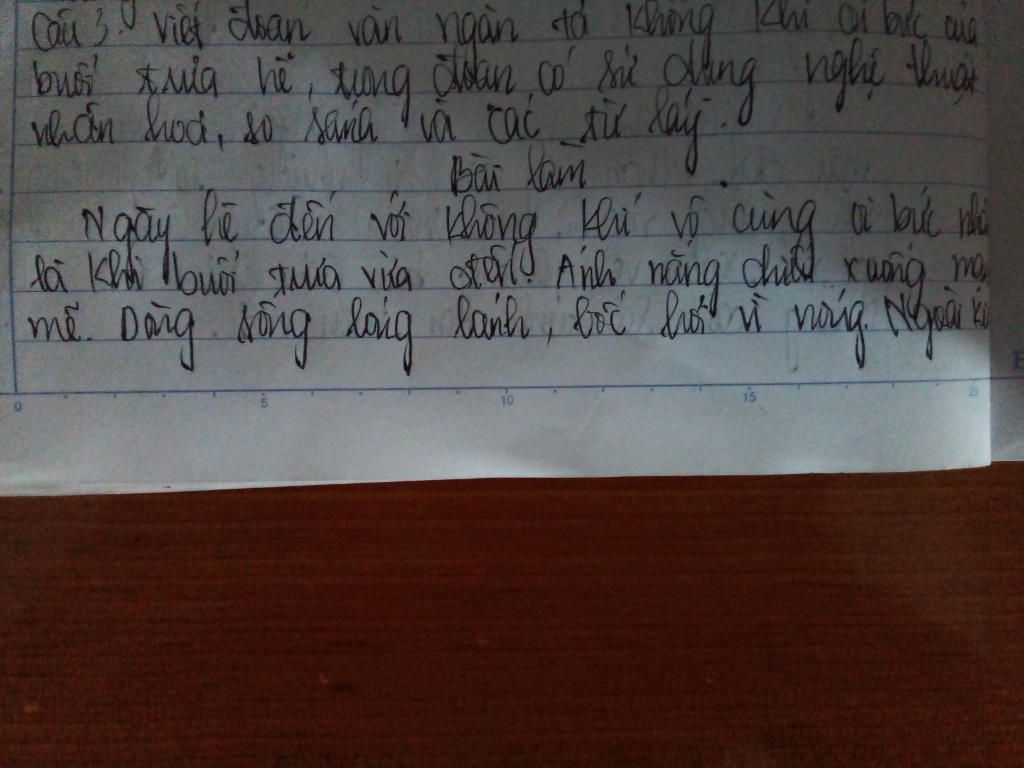 Câu 3: Viết đoạn văn ngắn tả không khí oi bức của
buổi trưa hè, trong đoạn có sử dụng nghệ thuật
nhân hoá, so sánh và các từ láy.
Bài làm
Ngày hè đến với không khí vô cùng oi bức nhất
là khi buổi trưa vừa đến. Ánh nắng chiếu xuống
mẽ. Dòng sông lóng lánh, bốc hơi vì nóng. Ngoài
0 5 10 15 20